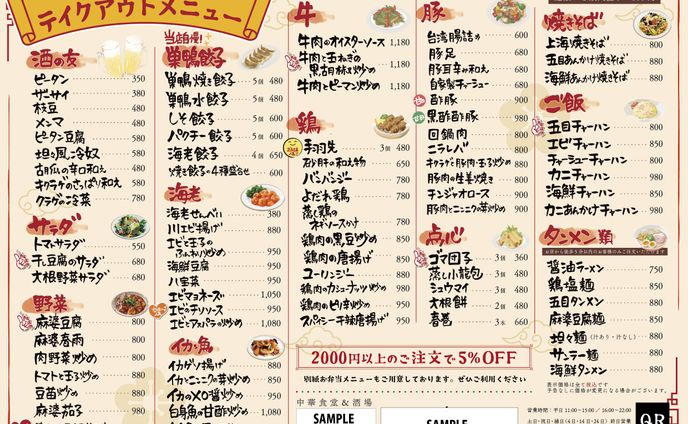 テイクアウトメニュー
酒の友
ピータン 350
ザーサイ 350
枝豆 350
メンマ 380
ピータン豆腐 580
坦々風冷奴 580
胡瓜の辛口和え 480
キクラゲのさっぱり和え 580
クラゲの冷菜 780
サラダ
トマトサラダ 550
干し豆腐のサラダ 680
大根野菜サラダ 680
野菜
麻婆豆腐 880
麻婆春雨 880
肉野菜炒め 880
トマトと玉子炒め 880
豆苗炒め 880
麻婆茄子 880
当店自慢!
巣鴨餃子
巣鴨焼き餃子 5個 480
巣鴨水餃子 5個 480
しそ餃子 5個 580
パクチー餃子 5個 580
海老餃子 4個 650
焼き餃子の4種盛合せ 600
海老
海老せんべい 380
川エビ揚げ 680
エビと玉子のふんわり炒め 980
海鮮豆腐 980
八宝菜 980
エビマヨネーズ 1,050
エビチリソース 1,050
エビとアスパラの炒め 1,080
イカ・魚
イカゲソ揚げ 680
イカとニンニクの芽炒め 950
イカのXO醤炒め 950
白身魚の甘酢炒め 950
牛
牛肉のオイスターソース 1,180
牛肉と玉ねぎの黒胡椒炒め 1,180
牛肉とピーマン炒め 1,180
鶏
手羽先 3個 480
砂肝の和え物 650
バンバンジー 780
よだれ鶏 780
蒸し鶏のネギソースかけ 780
鶏肉の黒豆炒め 950
鶏肉の唐揚げ 950
ユーリンジー 880
鶏肉のカシューナッツ炒め 950
鶏肉のピリ辛炒め 950
スパイシー干辣唐揚げ 950
豚
台湾腸詰め 600
豚足 680
豚耳辛み和え 680
自家製チャーシュー 680
酢豚 980
黒酢酢豚 980
回鍋肉 900
ニラレバ 900
キクラゲと豚肉・玉子炒め 900
豚肉の生姜焼き 900
チンジャオロース 900
豚肉とニンニクの芽炒め 900
点心
ゴマ団子 3個 360
蒸し小龍包 3個 480
シュウマイ 3個 480
大根餅 2個 480
春巻 3個 660
焼きそば
上海焼きそば 800
五目あんかけ焼そば 880
海鮮あんかけ焼そば 880
ご飯
五目チャーハン 800
エビチャーハン 880
チャーシューチャーハン 880
カニチャーハン 880
海鮮チャーハン 880
カニあんかけチャーハン 900
タンメン類
醤油ラーメン 750
鶏塩麺 800
五目タンメン 880
麻婆豆腐麺 880
坦々麺(汁あり・汁なし) 880
サンラー麺 880
海鮮タンメン 880
表示価格は全て税込です
予告なしに価格が変更になる場合がございます。
2000円以上のご注文で5%OFF
別紙お弁当メニューもご用意しております。ぜひご利用ください
中華食堂&酒場
SAMPLE
SAMPLE
営業時間:平日 11:00~15:00 / 16:00~22:00
QR